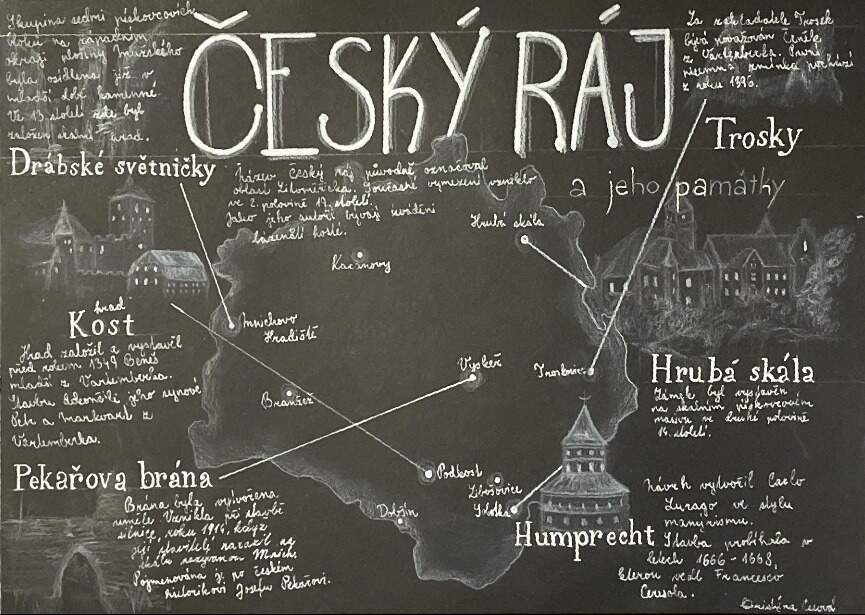 ČESKÝ RÁJ
a jeho památky
Skupina sedmi pískovcových
bloků na západním
okraji plošiny Mužského
byla osídlena již v
mladší době kamenné.
Ve 13. století zde byl
založen skalní hrad.
Drábské světničky
Název Český ráj původně označoval
oblast Litoměřicka. Současné vymezení vzniklo
ve 2. polovině 19. století.
Jako jeho autoři bývají uváděni
lázeňští hosté.
Za zakladatele Trosek
bývá považován Čeněk
z Vartenberka. První
písemná zmínka pochází
z roku 1396.
Trosky
Hrubá skála
Kacanovy
Mnichovo
Hradiště
Vyskeř
Troskovice
Branžež
Podkost
Libošovice
Dobšín
hrad
Kost
Hrad založil a vystavěl
před rokem 1349 Beneš
mladší z Vartemberka.
Stavbu dokončili jeho synové
Petr a Markvart z
Vartemberka.
Hrubá skála
Zámek byl vystavěn
na skalním pískovcovém
masivu ve druhé polovině
14. století.
Pekařova brána
Brána byla vytvořena
uměle. Vznikla při stavbě
silnice, roku 1914, když
její stavitelé narazili na
skálu nazývanou
Pojmenována je po českém
historikovi Josefu Pekařovi.
Humprecht
Návrh vytvořil Carlo
Lurago ve stylu
manýrismu.
Stavba probíhala v
letech 1666 - 1668,
kterou vedl Francesco
Ceresola.